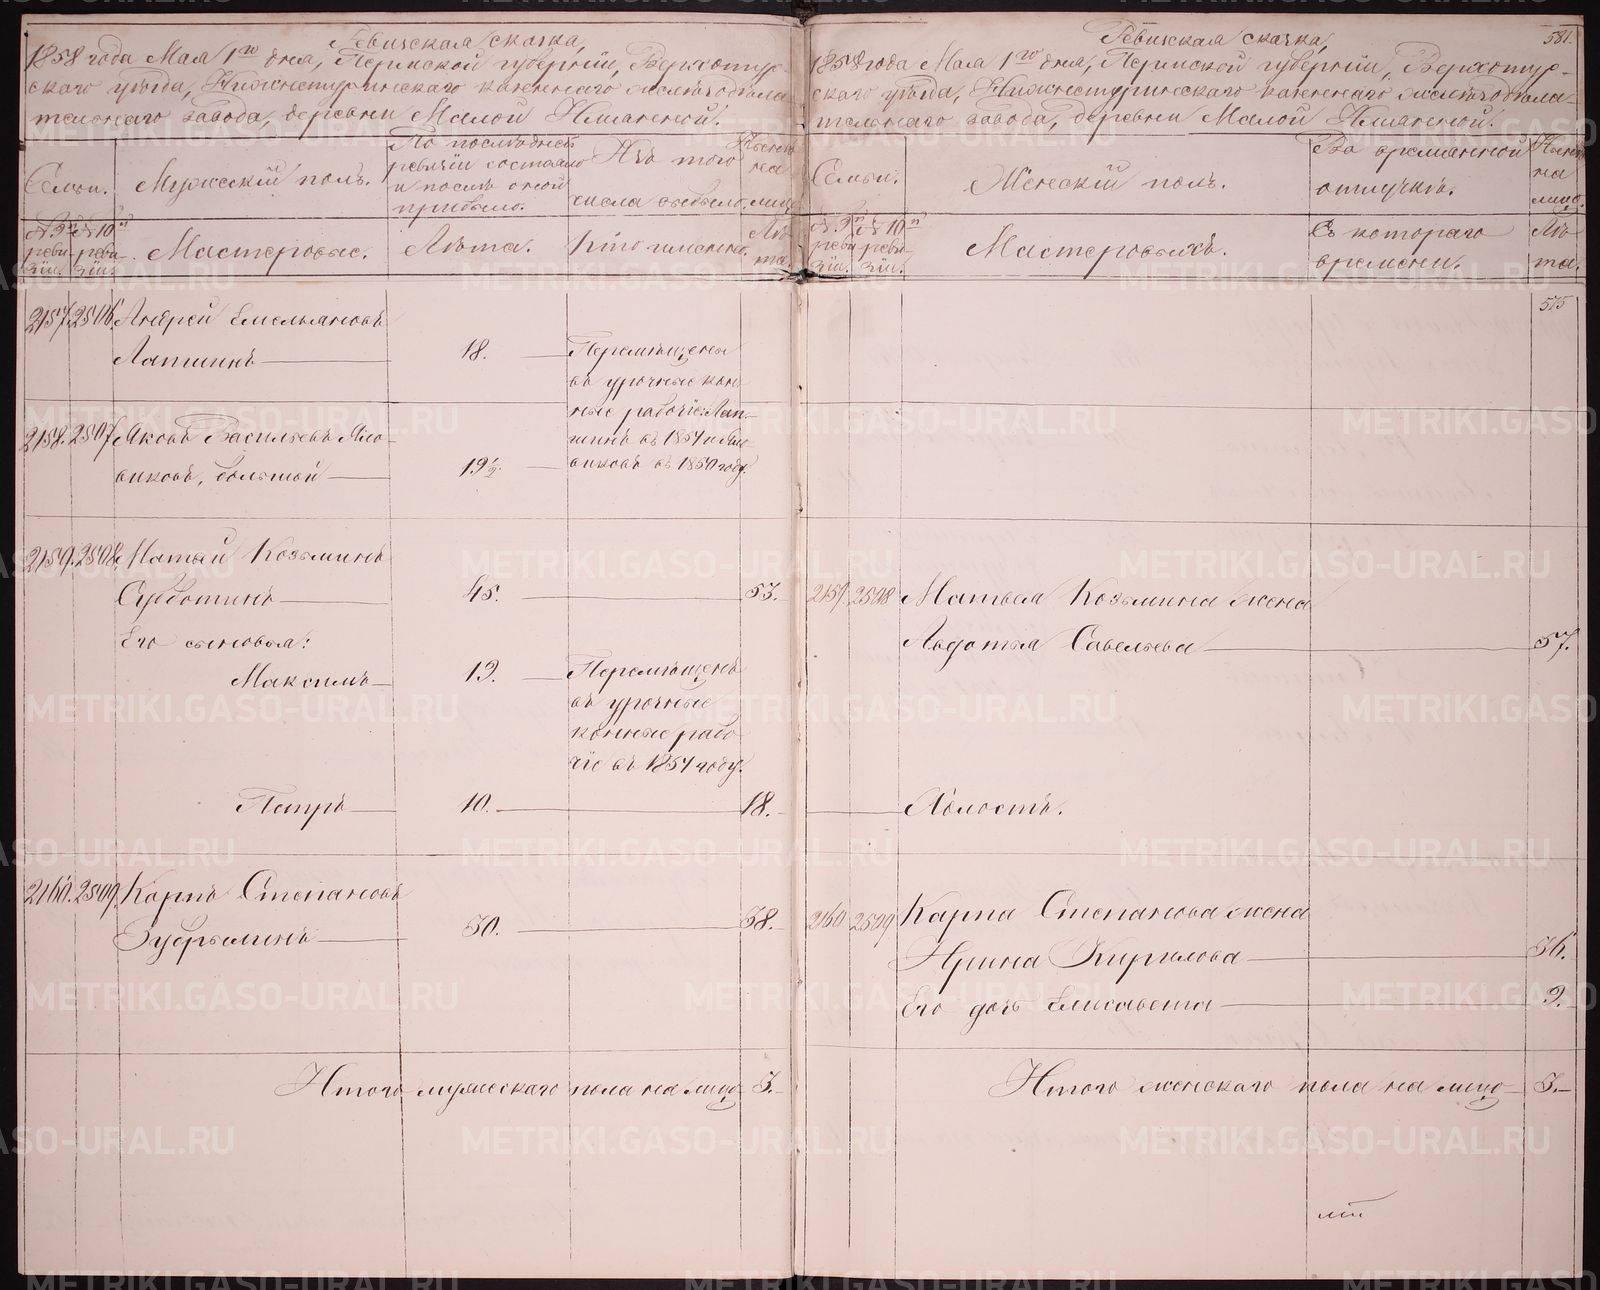 Ревижская сказка,
1858 года Мая 1го дня, Пермской губернiи, Верхотур-
скаго уѣзда, Нижнетуринскаго казеннаго желѣзодѣла
тельнаго завода, деревни Малой Именной.
Семьи.
Мужескiй полъ.
По послѣдней
ревизiи состояло
и послѣ оной
прибыло.
Изъ того
числа выбыло.
Нынѣ
на
лицо
№ 9й реви-зiи.
№ 10й реви-зiи.
Мастеровые.
Лѣта.
Кто именно.
Лѣ-
та.
2157. 2506. Андрей Емельяновъ
Лапшинъ 18. Перемѣщены
въ урочные кон
ные рабочiе: Лап-
2158. 2507 Яковъ Васильевъ
шинъ въ 1854 и
виковъ, большой 19½.
виковъ въ 1850 году.
2159. 2508. Матвѣй Козьминъ
Субботинъ 45. 53.
Его сыновья:
Максимъ 19. Перемѣщенъ
въ урочные
конные рабо
чiе въ 1854 году.
Петръ 10. 18.
2160. 2509. Карпъ Степановъ
30. 38.
Итого мужескаго пола на лицо 3.
581.
Ревижская сказка,
1858 года Мая 1го дня, Пермской губернiи, Верхотур-
скаго уѣзда, Нижнетуринскаго казеннаго желѣзодѣла-
тельнаго завода, деревни Малой Именной.
Семьи.
Женскiй полъ.
Во временной
отлучкѣ.
Нынѣ
на
лицо.
№ 9й реви-зiи.
№ 10й реви-зiи.
Мастеровыхъ.
Съ котораго
времени.
Лѣ-
та.
575
2159 2508 Матвея Козьмина жена
Авдотья Савельева 57.
Холостъ.
2160 2509 Карпа Степанова жена
Ирина Кирилова 36.
Его дочь Елисавета 9.
Итого женскаго пола на лицо 3.
METRIKI.GASO-URAL.RU